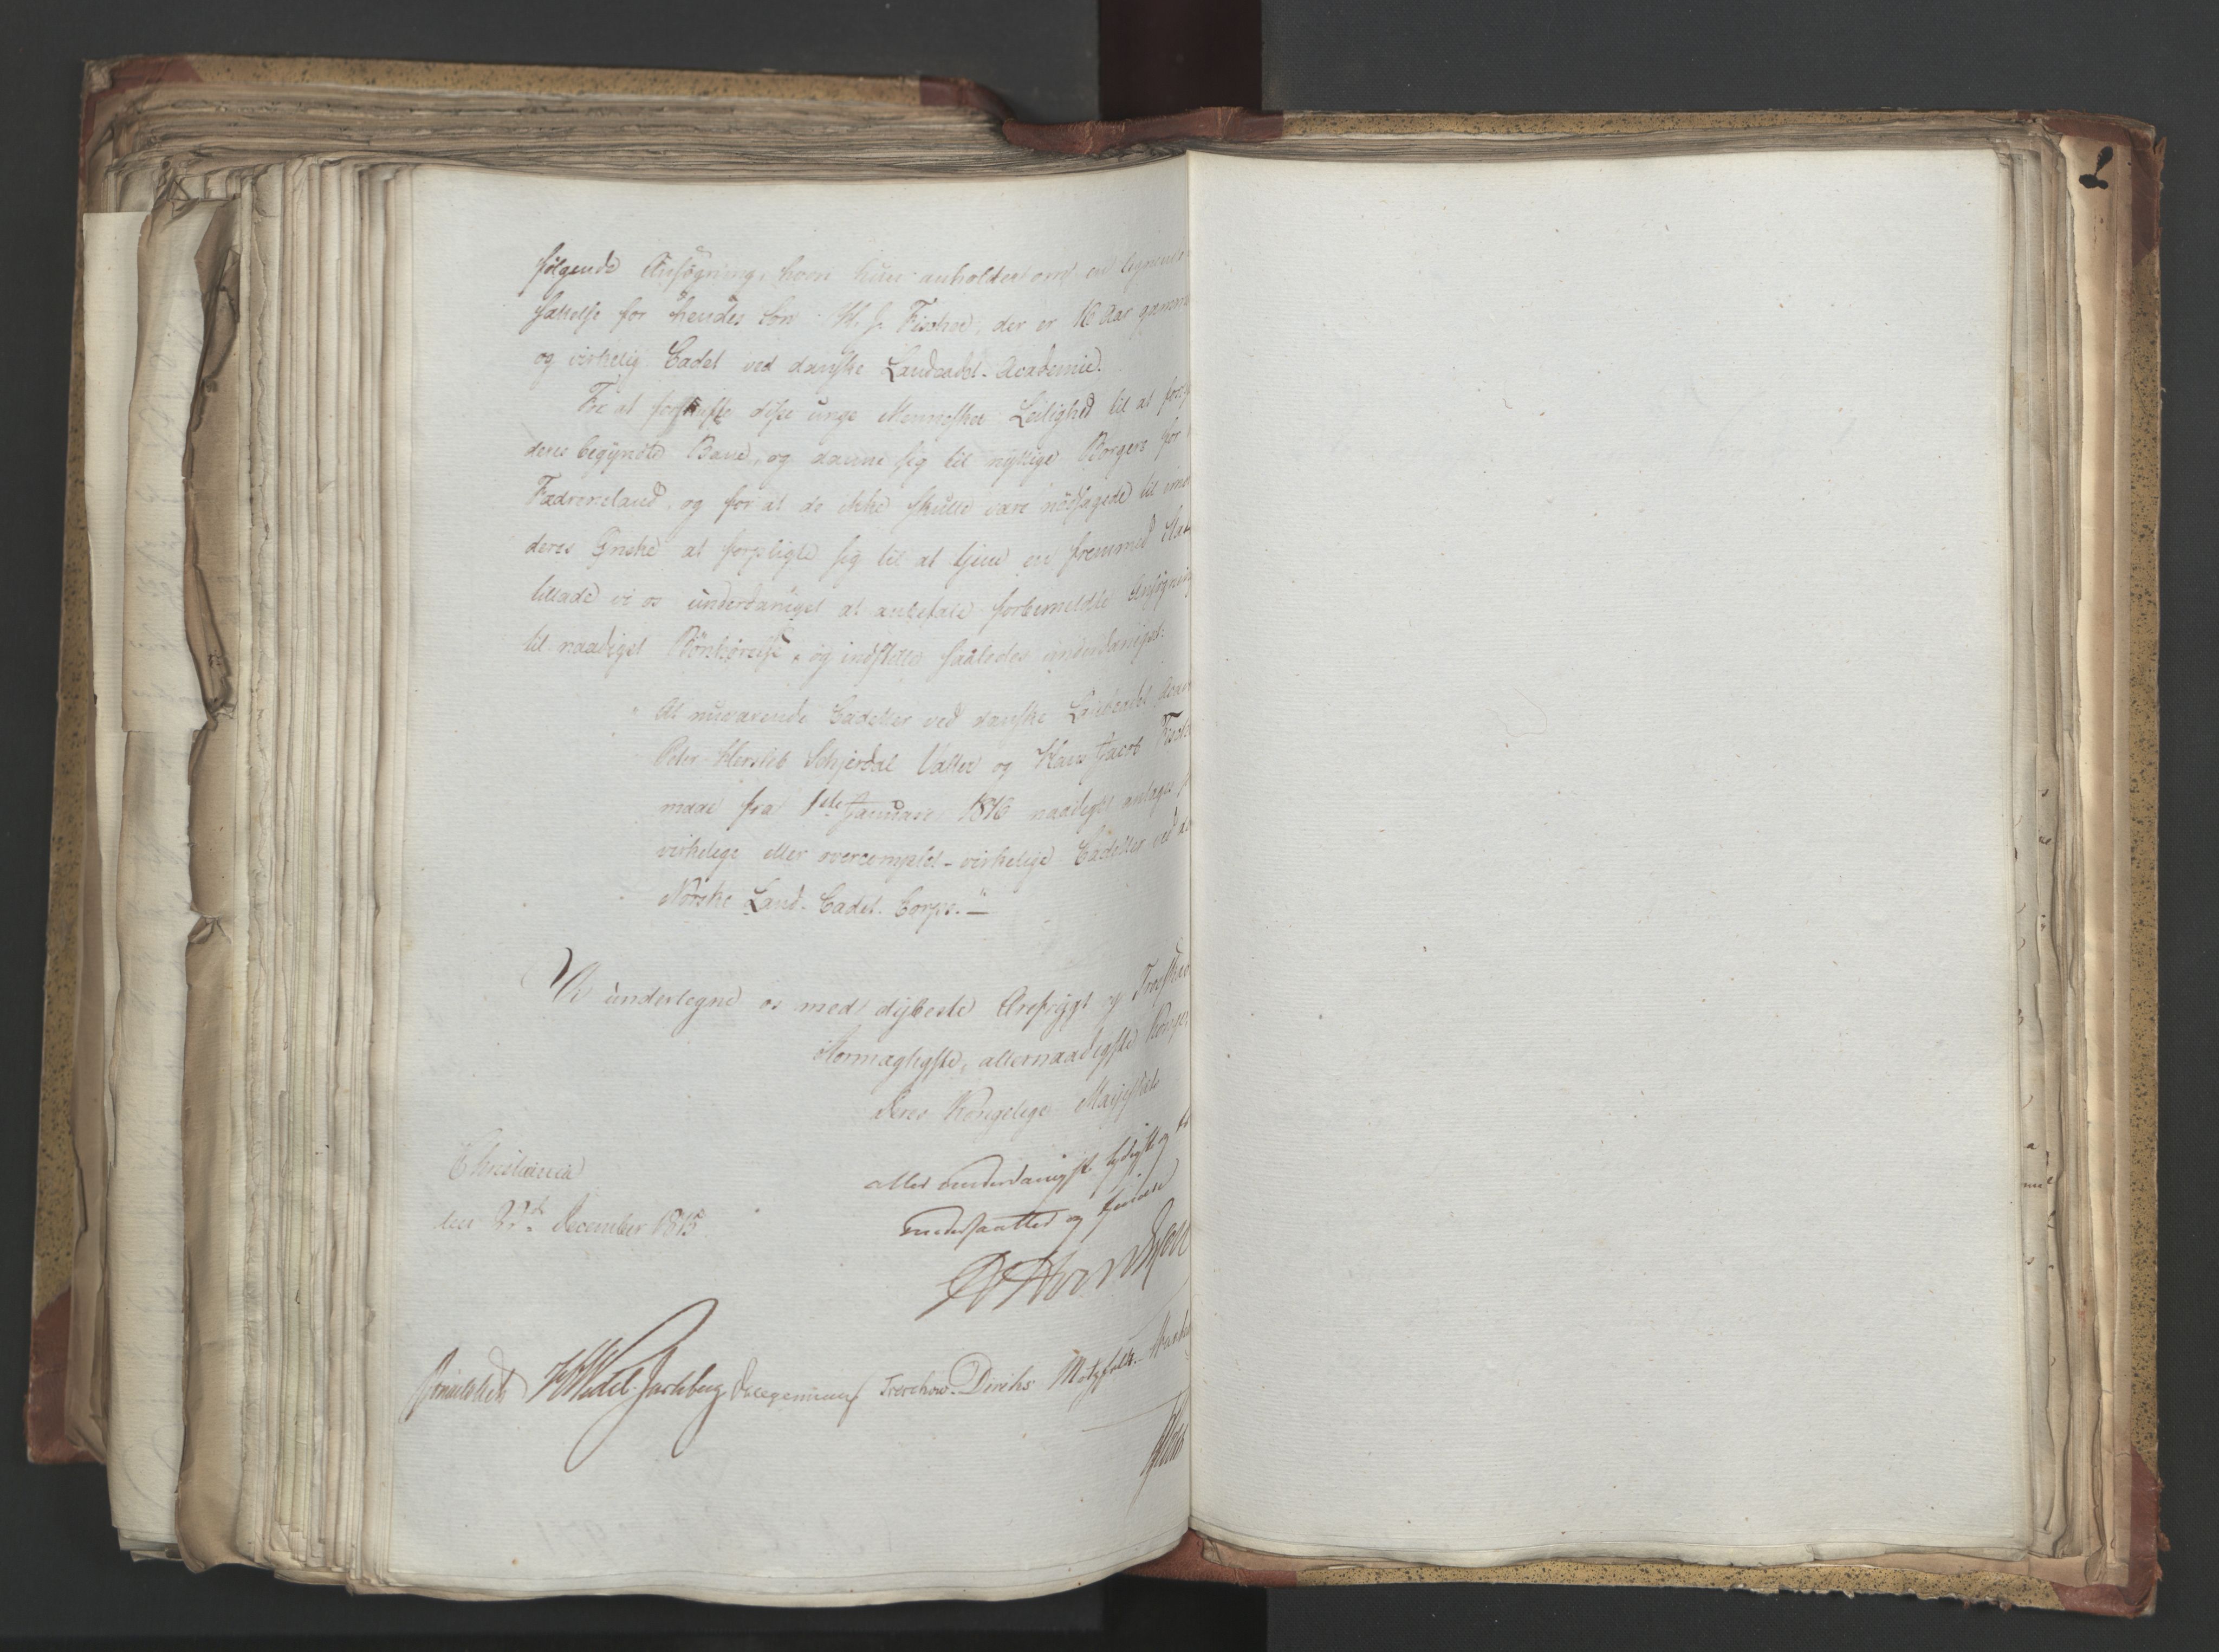 følgende Ansøgning, hvori hun anholder om en lignende
sættelse for hendes Søn H. J. Fischer, der er 16 Aar gamme
og virkelig Cadet ved danske Landcadet-Academie.
For at forskaffe disse unge Mennesker Leilighed til at
deres begyndte Bane, og danne sig til nyttige Borgere for
Fædreneland, og for at de ikke skulle være nødsagede til imod
deres Ønske at forpligte sig til at tjene en fremmed Stat
tillade vi os underdanigst at anbefale forbemeldte Ansøgning
til naadigst Bønhørelse, og indstille saaledes underdanigst:
" At nuværende Cadetter ved danske Landcadet Acade
Peter Hersleb Schjerdal og Hans Jacob Fischer
maae fra 1ste Januar 1816 naadigst antages
virkelige eller overcomplet-virkelige Cadetter ved de
Norske Land-Cadet-Corps." —
Vi undertegne os med dybeste Ærefrygt og Troskab
Stormægtigste, allernaadigste Konge
Deres Kongelige Majestæts
allerunderdanigst lydigste og
undersaatter og tienere
Christiania
den 22d December 1815
HWedel-Jarlsberg Treschow Diriks Motzfeldt